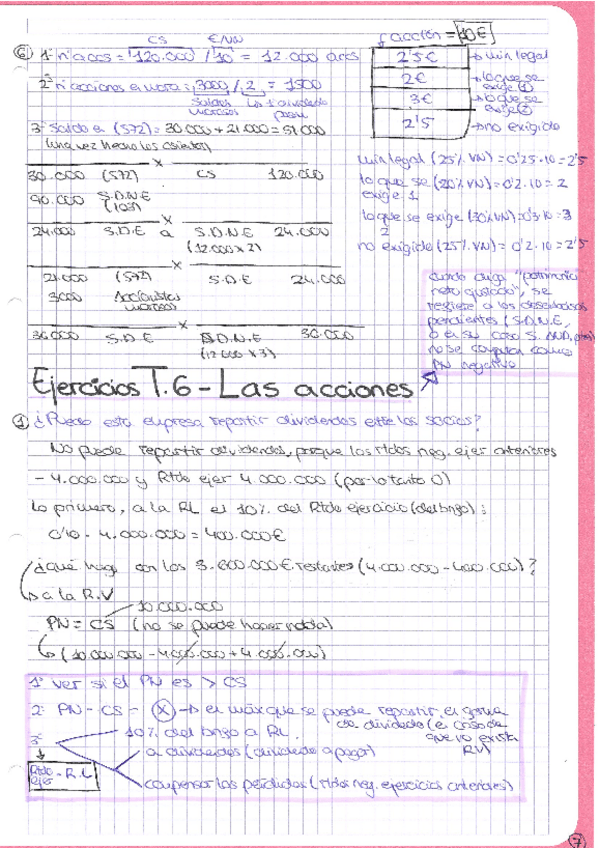 CS €/VN
⑥ 1º nº accs = 120.000 / 10 = 12.000 accs
2º nº acciones en mora = 3000 / 2 = 1500
Saldos morosos
los 1º dividendo
3º Saldo en (572) = 30.000 + 21.000 = 51.000
(una vez hecho los asientos)
x
30.000 (572) CS 120.000
90.000 S.D.N.E (103)
x
24.000 S.D.E a S.D.N.E 24.000
(12.000 x 2)
x
21.000 (572) S.D.E 24.000
3000 Accionistas morosos
x
36.000 S.D.E S.D.N.E 36.000
(12.000 x 3)
acción = 10€
2'5€ → min legal
2€ → lo que se exige ①
3€ → lo que se exige ②
2'5 → no exigido
min legal (25% VN) = 0'25 · 10 = 2'5
lo que se (20% VN) = 0'2 · 10 = 2
exige 1
lo que se exige (30% VN) = 0'3 · 10 = 3
2
no exigido (25% VN) = 0'2 · 10 = 2'5
cuando diga "patrimonio
neto ajustado", se
refiere a los desembolsos
pendientes (S.D.N.E,
o en su caso S. AND, pero)
no se computan como
PN negativo
Ejercicios T.6 - Las acciones
① ¿Puede esta empresa repartir dividendos entre los socios?
No puede repartir dividendos, porque los rtdos neg. ejer anteriores
- 4.000.000 y Rtdo ejer 4.000.000 (por lo tanto 0)
Lo primero, a la RL el 10% del Rtdo ejercicio (del bngo):
0'10 · 4.000.000 = 400.000€
¿Qué hago con los 3.600.000€ restantes (4.000.000 - 400.000)?
→ a la R.V
10.000.000
PN = CS (no se puede hacer nada)
→ (10.000.000 - 4.000.000 + 4.000.000)
1º ver si el PN es > CS
2º PN - CS = Ⓧ → el máx que se puede repartir en forma
de dividendo (en caso de
que no exista
RV)
3º 10% del bngo a RL.
a dividendos (dividendo a pagar)
Rtdo ejer - R.L
compensar las pérdidas (rtdos neg. ejercicios anteriores)
7